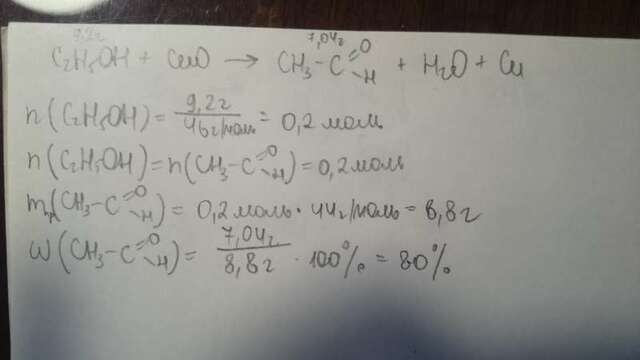 9,2г 7,04г
C₂H₅OH + CuO → CH₃-C(=O)-H + H₂O + Cu
n(C₂H₅OH) = 9,2г / 46г/моль = 0,2 моль
n(C₂H₅OH) = n(CH₃-C(=O)-H) = 0,2 моль
m(CH₃-C(=O)-H) = 0,2 моль · 44г/моль = 8,8г
W(CH₃-C(=O)-H) = 7,04г / 8,8г · 100% = 80%